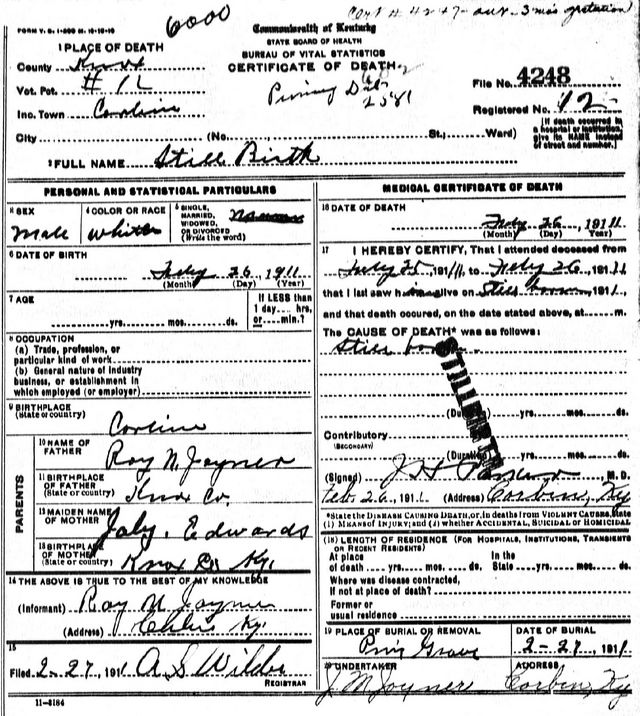 6000
Cort # 4247 - aux - 3 mos gestation
FORM V. S. 1-
Commonwealth of Kentucky
STATE BOARD OF HEALTH
BUREAU OF VITAL STATISTICS
CERTIFICATE OF DEATH
1 PLACE OF DEATH
County Knox
Vot. Pct. # 12
Inc. Town Corbin
Primary Dist.
2581
File No. 4248
Registered No. 12
City (No., St.; Ward)
[If death occurred in
a hospital or institution,
give its NAME instead
of street and number.]
2 FULL NAME Still Birth
PERSONAL AND STATISTICAL PARTICULARS
3 SEX
Male
4 COLOR OR RACE
White
5 SINGLE,
MARRIED,
WIDOWED,
OR DIVORCED
(Write the word)
6 DATE OF BIRTH
Feby 26, 1911
(Month) (Day) (Year)
7 AGE
yrs. mos. ds.
If LESS than
1 day.... hrs,
or.... min.?
8 OCCUPATION
(a) Trade, profession, or
particular kind of work
(b) General nature of industry
business, or establishment in
which employed (or employer)
9 BIRTHPLACE
(State or country)
Corbin
PARENTS
10 NAME OF
FATHER
Roy N. Joyner
11 BIRTHPLACE
OF FATHER
(State or country)
Knox Co.
12 MAIDEN NAME
OF MOTHER
Edwards
13 BIRTHPLACE
OF MOTHER
(State or country)
Knox Co Ky.
14 THE ABOVE IS TRUE TO THE BEST OF MY KNOWLEDGE
(Informant) Roy N Joyner
(Address) Ky.
15
Filed 2-27, 1911 A S Wilde
REGISTRAR
11-3184
MEDICAL CERTIFICATE OF DEATH
16 DATE OF DEATH
Feby 26 1911
(Month) (Day) Year)
17 I HEREBY CERTIFY, That I attended deceased from
Feby 25, 1911, to Feby 26 1911
that I last saw him alive on Still born, 1911,
and that death occured, on the date stated above, at m.
The CAUSE OF DEATH* was as follows:
Still born
STILLBIRTH
(Duration) yrs. mos. ds.
Contributory
(SECONDARY)
(Duration) yrs. mos. ds.
(Signed) J H Parker, M. D.
Feb. 26, 1911 (Address) Corbin, Ky
*State the DISEASE CAUSING DEATH, or, in deaths from VIOLENT CAUSES, State
(1) MEANS OF INJURY; and (2) whether ACCIDENTAL, SUICIDAL OR HOMICIDAL
(18) LENGTH OF RESIDENCE (FOR HOSPITALS, INSTITUTIONS, TRANSIENTS
OR RECENT RESIDENTS)
At place In the
of death yrs. mos. ds. State yrs. mos. ds.
Where was disease contracted,
If not at place of death?
Former or
usual residence
19 PLACE OF BURIAL OR REMOVAL
Piney Grove
DATE OF BURIAL
2-27, 1911
20 UNDERTAKER
J M Joyner
ADDRESS
Corbin, Ky